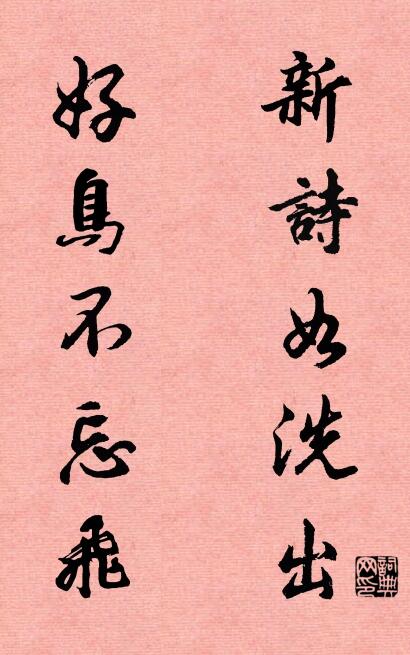 新詩如洗出
好鳥不忘飛
詞典网印